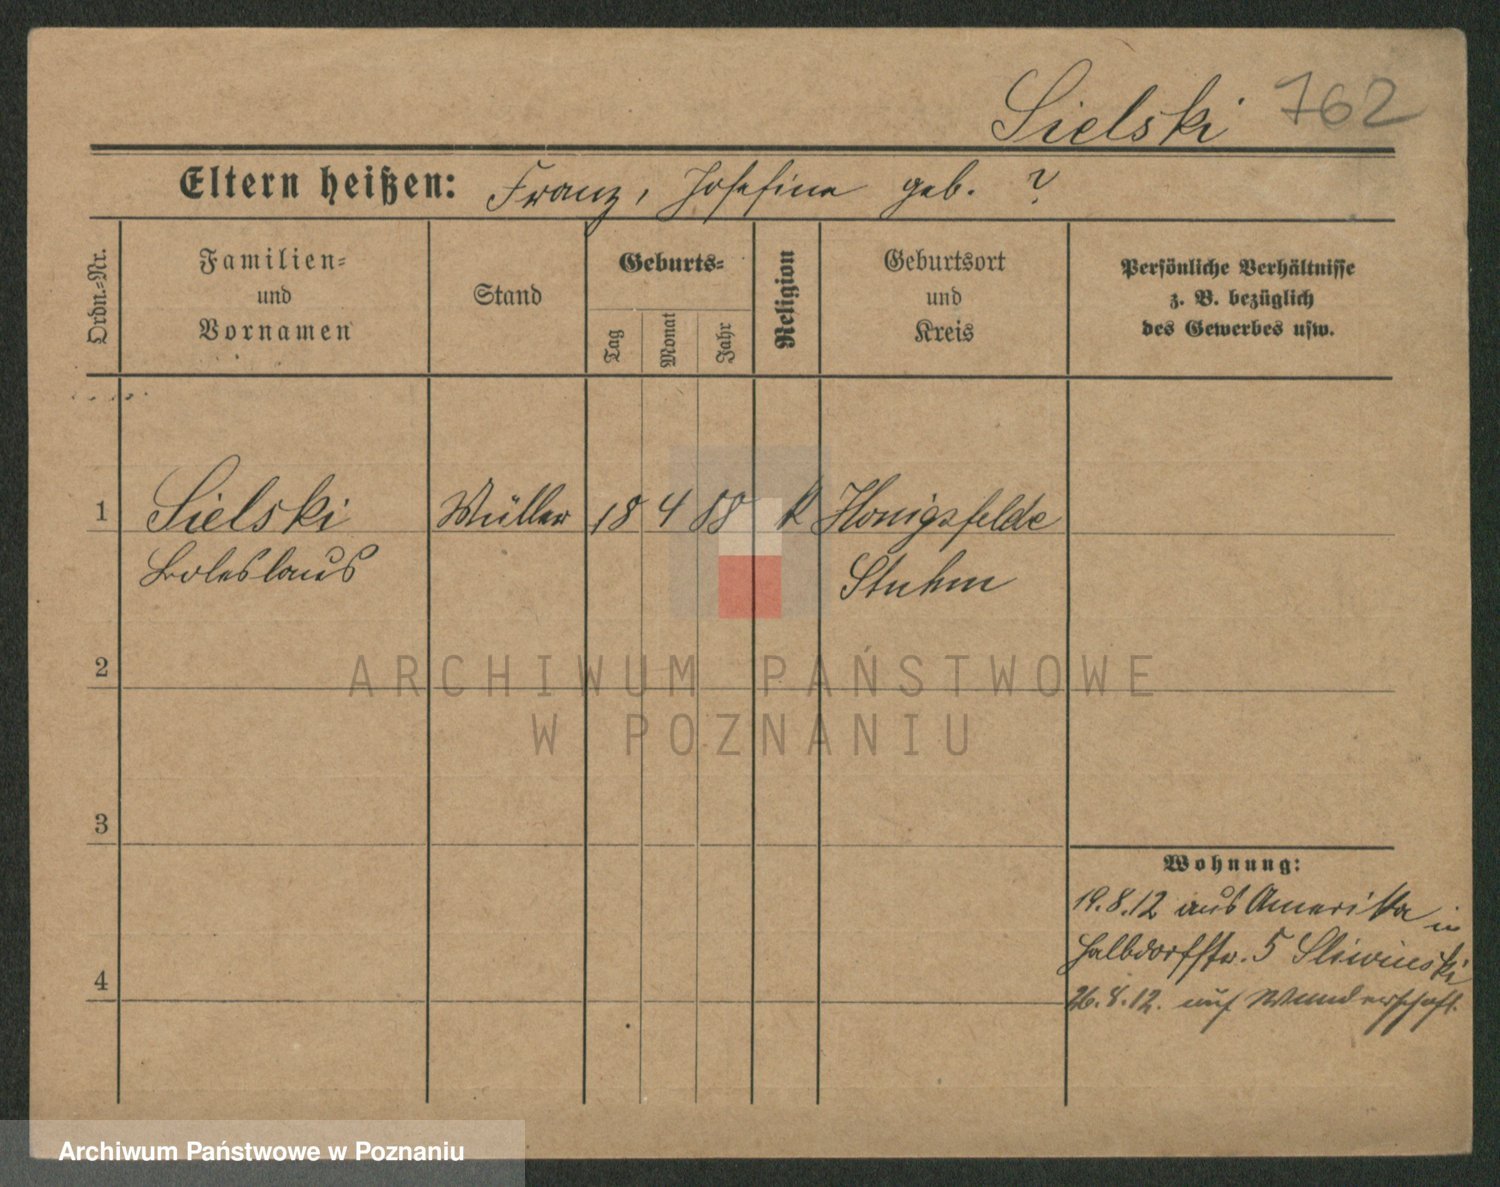 Sielski 762
Eltern heißen: Franz, Josefine geb. ?
Ordn.=Nr.
Familien=
und
Vornamen
Stand
Geburts=
Tag
Monat
Jahr
Religion
Geburtsort
und
Kreis
Persönliche Verhältnisse
z. B. bezüglich
des Gewerbes usw.
1 Sielski Müller 18 4 88 k Honigsfelde
Boleslaus Stuhm
2
ARCHIWUM PAŃSTWOWE
W POZNANIU
3
Wohnung:
19.8.12 aus Amerika in
Halbdorfstr. 5 Sliwinski
4
26.8.12. auf Wanderschaft.
Archiwum Państwowe w Poznaniu